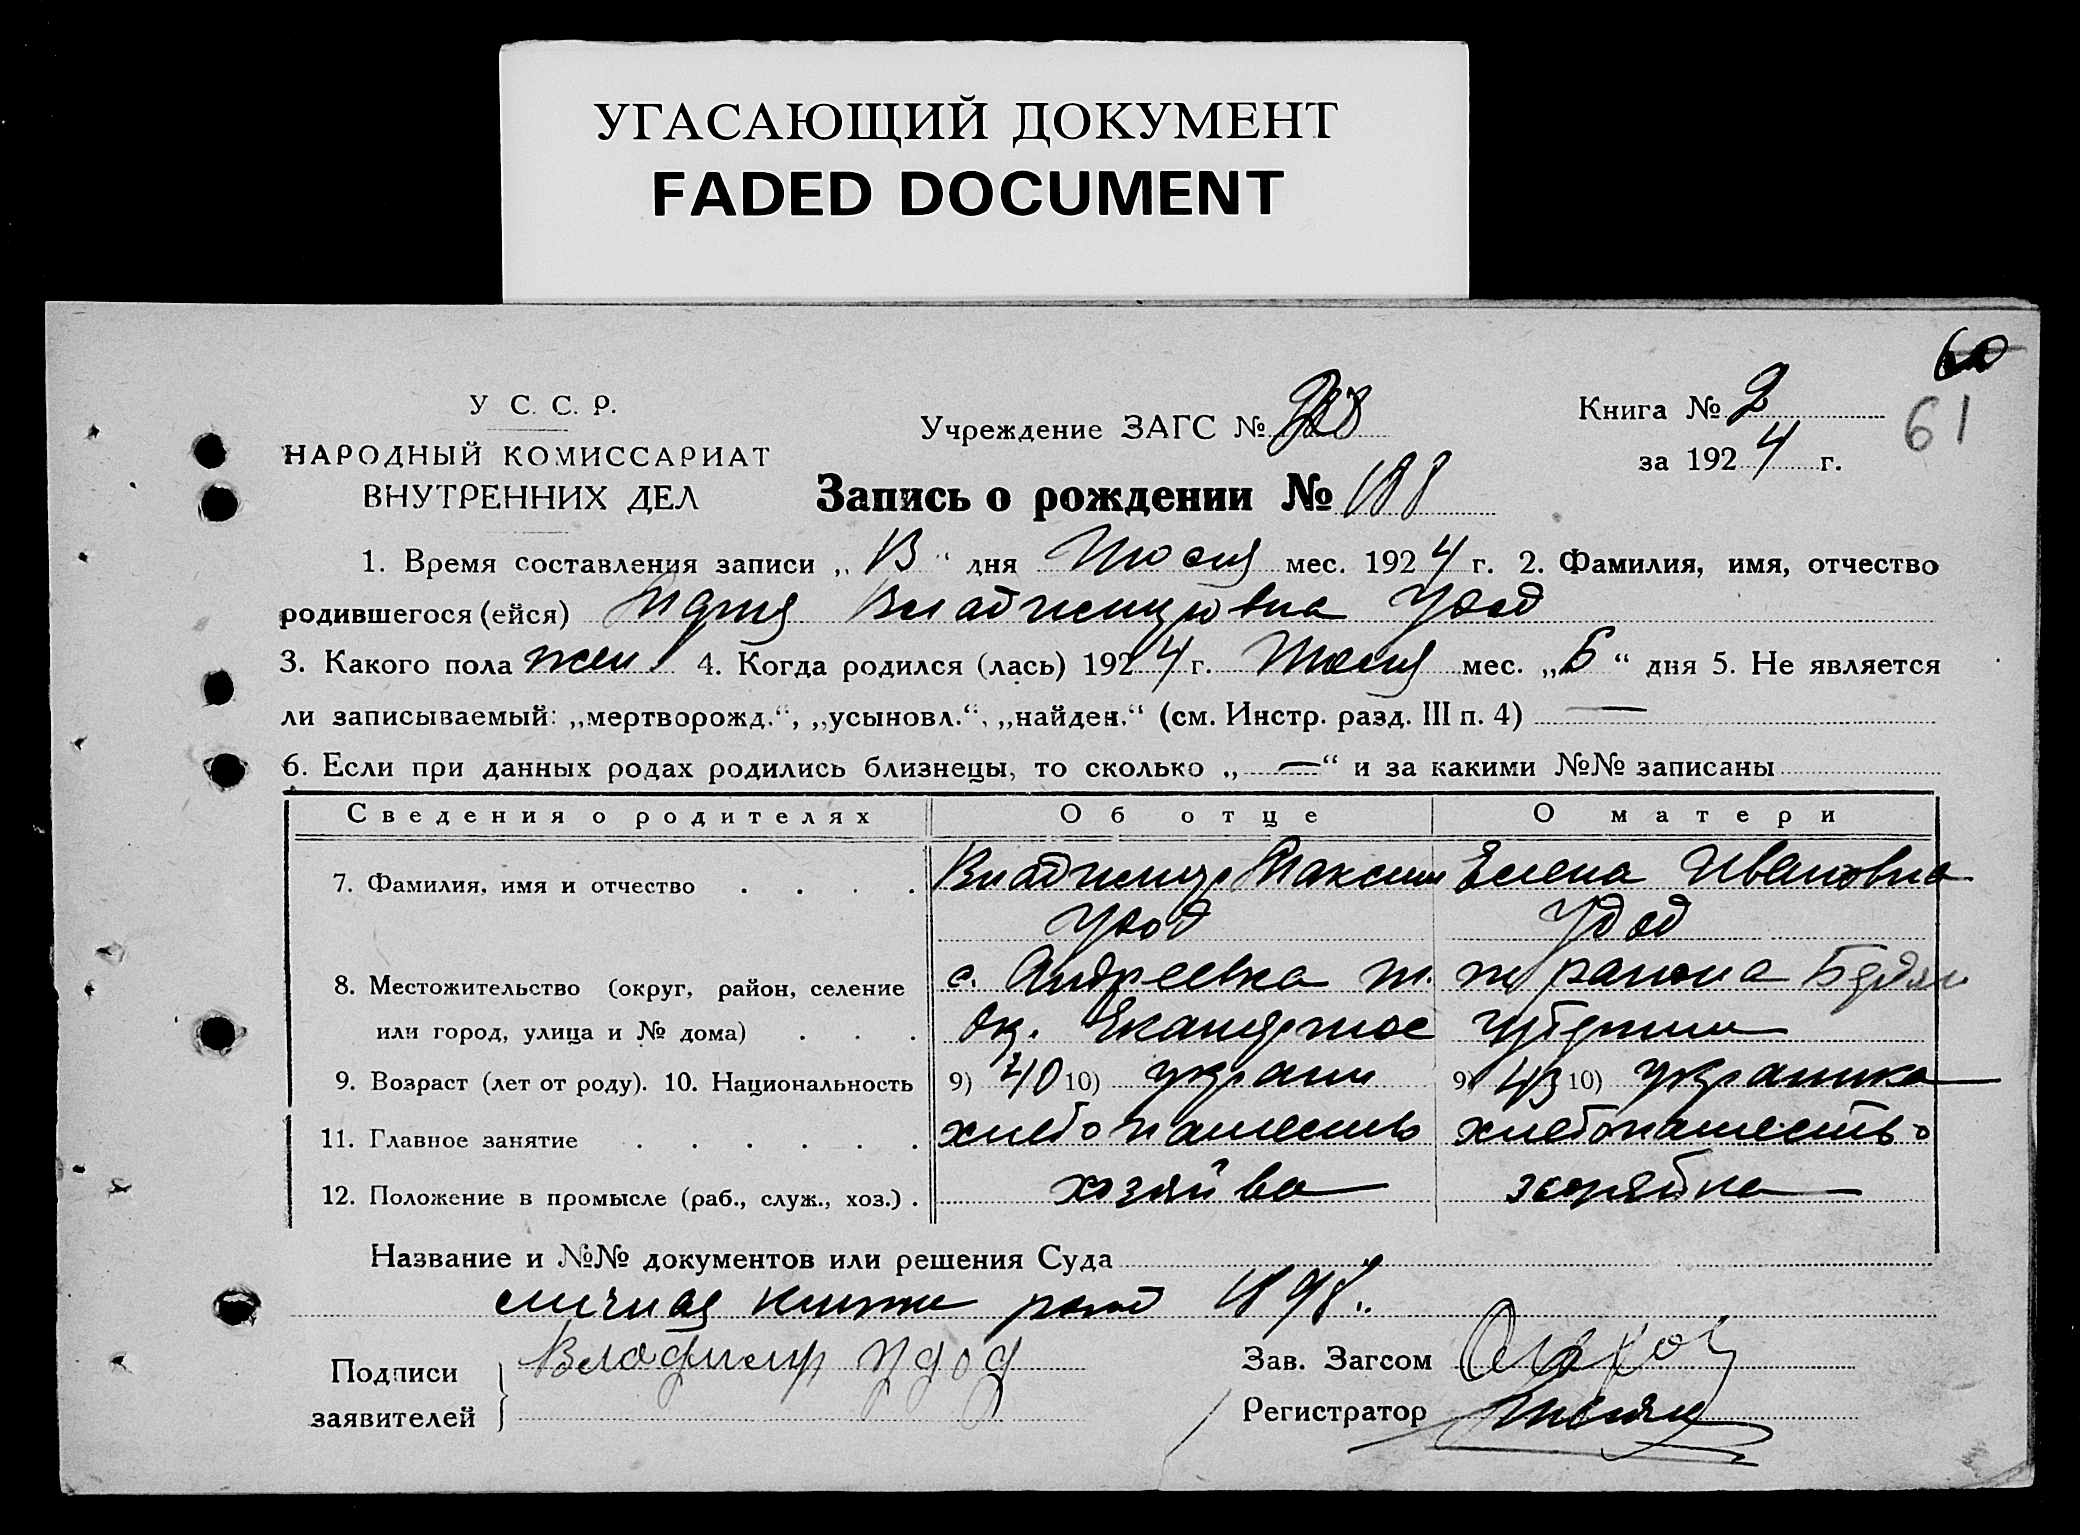 УГАСАЮЩИЙ ДОКУМЕНТ
FADED DOCUMENT
60
У С. С. Р.
Учреждение ЗАГС №
Книга № 2
61
НАРОДНЫЙ КОМИССАРИАТ
за 1924 г.
ВНУТРЕННИХ ДЕЛ
Запись о рождении № 188
1. Время составления записи „ “ дня Июля мес. 1924 г. 2. Фамилия, имя, отчество
родившегося (ейся) Мария Владимировна Удод
3. Какого пола жен 4. Когда родился (лась) 1924 г. Июля мес. „ “ дня 5. Не является
ли записываемый: „мертворожд.“, „усыновл.“, „найден.“ (см. Инстр. разд. III п. 4) —
6. Если при данных родах родились близнецы, то сколько „—“ и за какими №№ записаны
Сведения о родителях Об отце О матери
7. Фамилия, имя и отчество Владимир Максим Елена Ивановна
Удод Удод
8. Местожительство (округ, район, селение с. Андреевка района Бердян
или город, улица и № дома) Ок. губернии
9. Возраст (лет от роду). 10. Национальность 9) 40 10) украин 9) 43 10) украинка
11. Главное занятие хлебопашество хлебопашество
12. Положение в промысле (раб., служ., хоз.) хозяйка
Название и №№ документов или решения Суда
личная
Подписи Владимир Удод Зав. Загсом
заявителей Регистратор